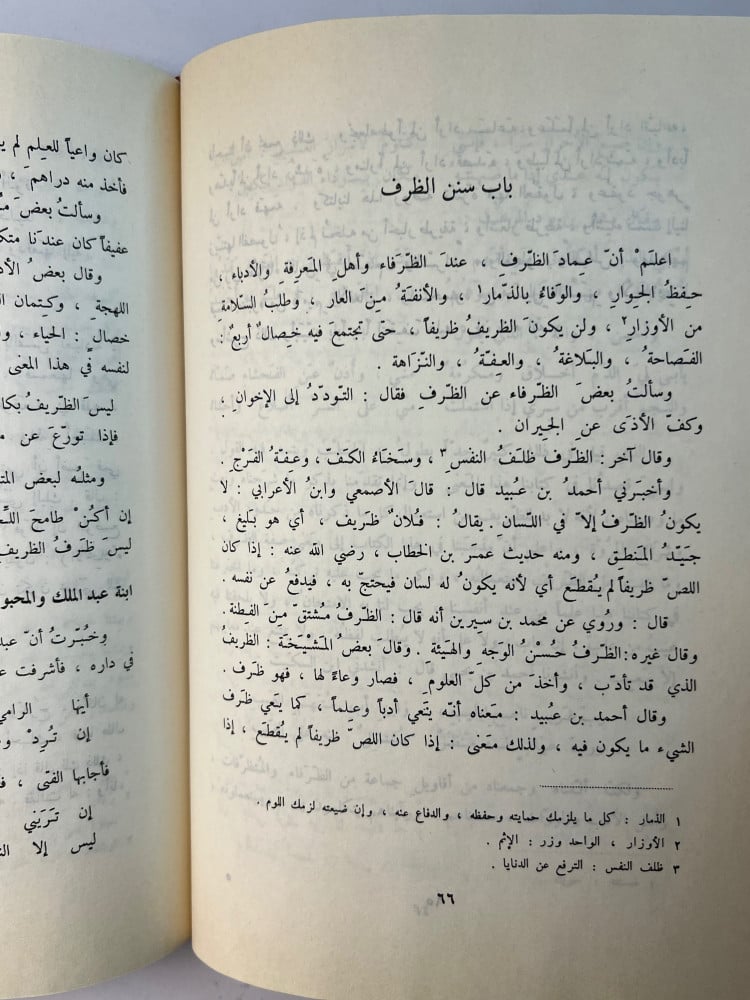 باب سنن الظرف
اعلَمْ أنّ عِمادَ الظّرفِ ، عندَ الظّرَفاء وأهلِ المَعرِفةِ والأدباء ،
حِفظُ الجِوارِ ، والوَفاءُ بالذّمار١ ، والأنفَةُ مِنَ العار ، وطلَبُ السّلامةِ
من الأوزارِ٢ ، ولن يكونَ الظريفُ ظريفاً ، حتى تجتمعَ فيه خِصالٌ أربعٌ :
الفَصاحةُ ، والبَلاغةُ ، والعِفّةُ ، والنّزاهة .
وسألتُ بعضَ الظّرفاء عن الظّرفِ فقال : التودّدُ إلى الإخوانِ ،
وكفّ الأذَى عنِ الجيران .
وقال آخر : الظّرف ظلَفُ النفس٣ ، وسَخاءُ الكفّ ، وعِفّةُ الفَرْجِ .
وأخبَرني أحمدُ بن عُبيد قال : قالَ الأصمعي وابنُ الأعرابي : لا
يكونُ الظّرفُ إلاّ في اللّسانِ . يقالُ : فُلانٌ ظَريف ، أي هو بَليغ ،
جيّدُ المَنطِق ، ومنه حديث عمرَ بن الخطاب ، رضي الله عنه : إذا كان
اللصّ ظريفاً لم يُقطَع أي لأنه يكونُ له لسان فيحتجّ به ، فيدفعُ عن نفسه .
قال : ورُوي عن محمد بن سيرين أنه قال : الظّرفُ مُشتقّ مِنَ الفِطنة .
وقال غيره : الظّرفُ حُسْنُ الوَجهِ والهَيئةِ . وقالَ بعضُ المَشْيَخَة : الظريفُ
الذي قد تأدّب ، وأخذَ من كلّ العلومِ ، فصار وعاءً لها ، فهو ظَرف .
وقال أحمد بن عُبيد : مَعناه أنّه يَعي أدباً وعلماً ، كما يَعي ظَرف
الشيء ما يكون فيه ، ولذلك مَعنى : إذا كان اللصّ ظريفاً لم يُقطَع ، إذا
١ الذمار : كل ما يلزمك حمايته وحفظه ، والدفاع عنه ، وإن ضيعته لزمك اللوم .
٢ الأوزار ، الواحد وزر : الإثم .
٣ ظلف النفس : الترفع عن الدنايا .
٦٦
كان واعياً للعِلم لم
فأخذ منه دراهم ،
وسألتُ بعضَ
عفيفاً كان عندَنا
وقال بعضُ
اللهجةِ ، وكِتمان
خصالٍ : الحياء ،
لنفسه في هذا المعنى
ليسَ الظّريفُ
فإذا تورّعَ عن
ومثلُه لبعض
إن أكنْ طامحَ
ليسَ ظَرفُ الظريفِ
ابنة عبد الملك
وخُبّرتُ أنّ
في داره ، فأشرفت
أيها الرامي
إن تُرِدْ
فأجابها الفتى ،
إن تَرَيني
ليس إلا